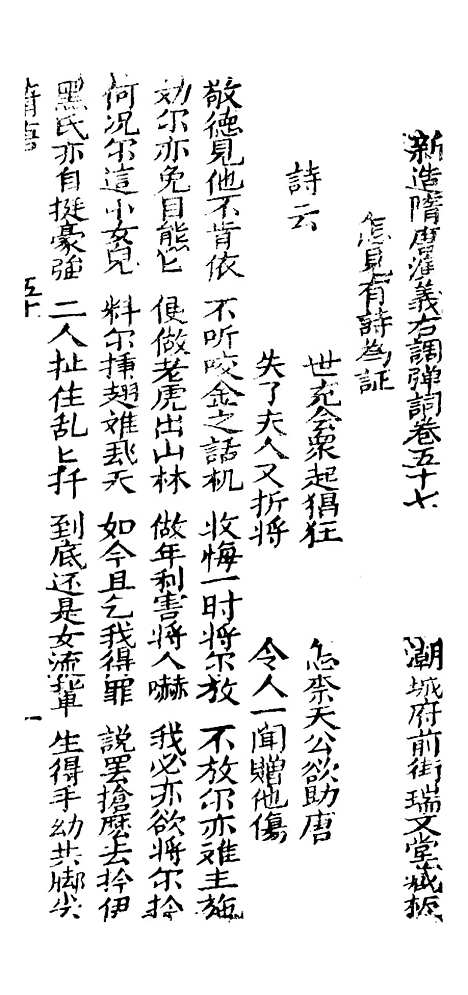 新造隋唐演義古調弹詞卷五十七 潮城府前街瑞文堂藏板
怎見有詩為証
詩云 世充会衆起猖狂 怎柰天公欲助唐
失了夫人又折将 令人一闻贈他傷
敬德見他不肯依 不听咬金之話机 收悔一时将尔放 不放尔亦难主施
効尔亦免目熊匕 便做老虎出山林 做年利害将人嚇 我必亦欲将尔拎
何況尔這小女兒 料尔揷翅难飛天 如今且乞我得罪 說罢搶麽去拎伊
黑氏亦自挺豪強 二人扯住乱匕扦 到底还是女流輩 生得手幼共脚尖
五十 一